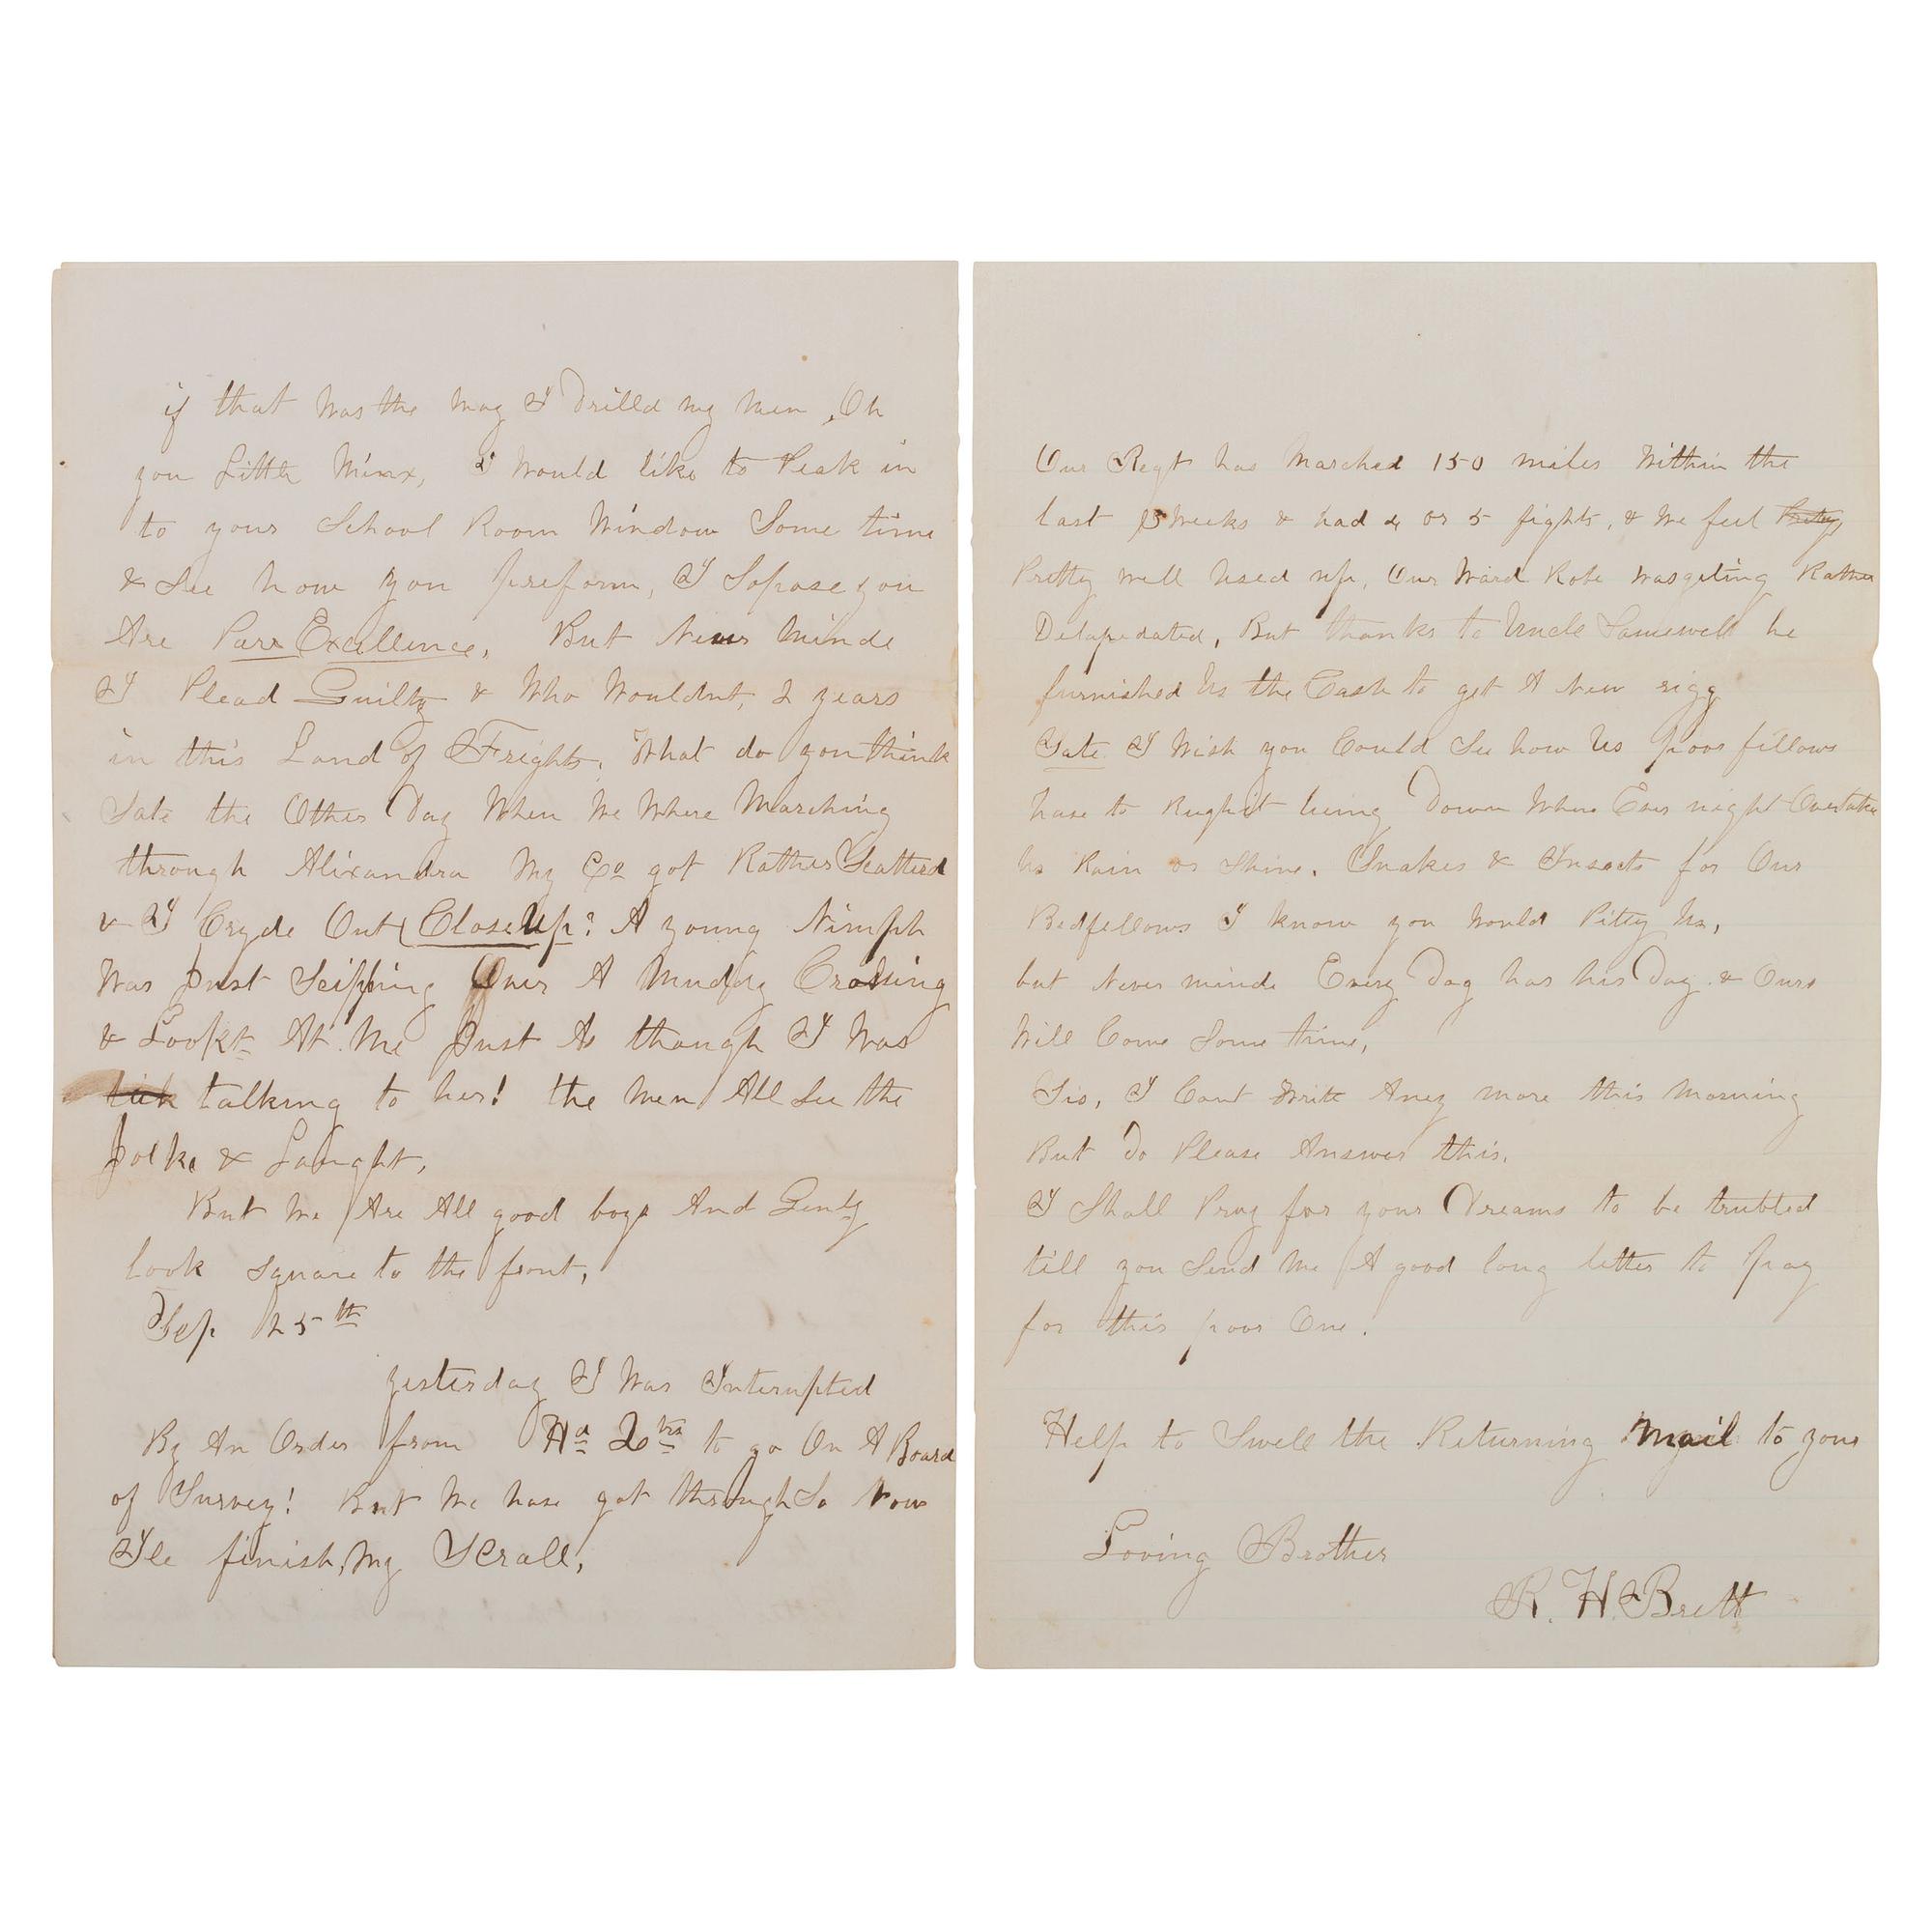 if that was the way I Drilld my men, Oh
you Little Minx, I would like to Peak in
to your School Room Window Some time
& See how you preform, I Sopose you
Are Parr Excellence, But Never minde
I Plead Guilty & Who Wouldnt, 2 years
in this Land of Frights, What do you think
Sate the Other Day When We Where Marching
through Alixandra My Co got Rather Scatterd
& I Cryde Out (Close Up? A young Nimph
Was Just Scipping Over A Muddy Crossing
& Lookt At Me Just As though I Was
talking to her! the men All See the
Joke & Laught,
But We Are All good boys And Genly
look square to the front,
Sep 25th
yesterday I Was Interupted
By An Order from Hd 2trs to go On A Board
of Survey! But We have got through So Now
Ile finish My Scrall,
Our Regt has Marched 150 miles Within the
last 3 weeks & had 4 or 5 fights, & We feel Pretty
Pretty well Used up, Our Ward Robe was geting Rather
Delapedated, But thanks to Uncle Samewell he
furnished Us the Cash to get A New rigg
Sate I Wish you Could See how Us poor fellows
have to Rught being Down Where Ever night Overtakes
Us Rain or Shine, Snakes & Insects for Our
Bedfellows I know you Would Pitty Us,
but Never minde Every Dog has his Day & Ours
Will Come Some time,
Sis, I Cant Write Aney more this Morning
But Do Please Answer this,
I Shall Pray for your Dreams to be trubled
till you Send Me A good long letter to pay
for this poor One.
Help to Swell the Returning Mail to your
Loving Brother
R. H. Brett